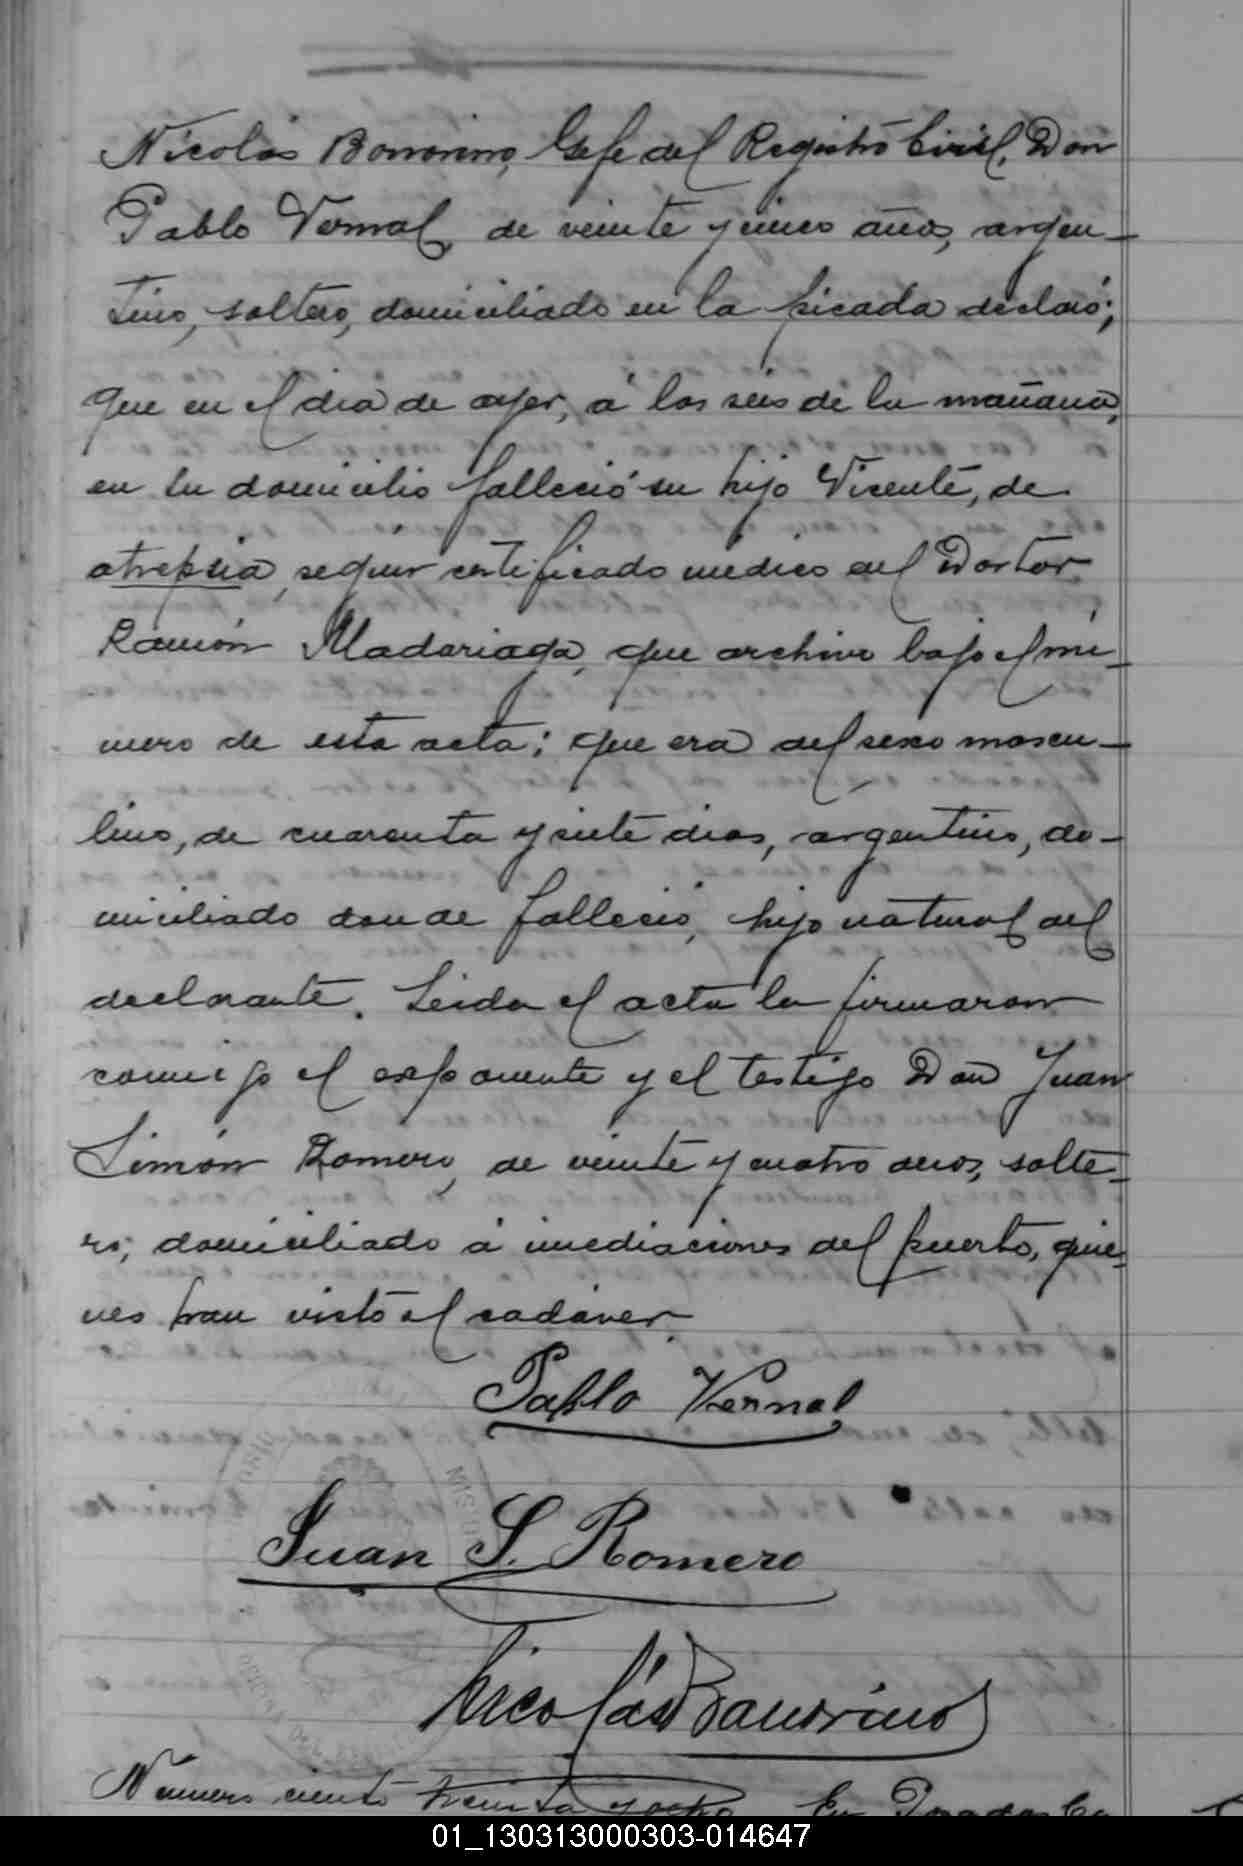 Nicolás Bonorino, Gefe del Registro Civil, Don
Pablo Vernal, de veinte y cinco años, argen-
tino, soltero, domiciliado en la picada declaró;
que en el dia de ayer, á las seis de la mañana,
en su domicilio falleció su hijo Vicente, de
atrepsia, segun certificado médico del Doctor
Ramón Madariaga, que archivo bajo el nú-
mero de esta acta; que era del sexo mascu-
lino, de cuarenta y siete dias, argentino, do-
miciliado donde falleció, hijo natural del
declarante. Leida el acta la firmaron
comigo el exponente y el testigo Don Juan
Simón Romero, de veinte y cuatro años, solte-
ro, domiciliado á inmediaciones del puerto, quie-
nes han visto el cadáver.
Pablo Vernal
Juan S. Romero
Nicolás Bonorino
Número ciento treinta y ocho En Posadas
01_130313000303-014647